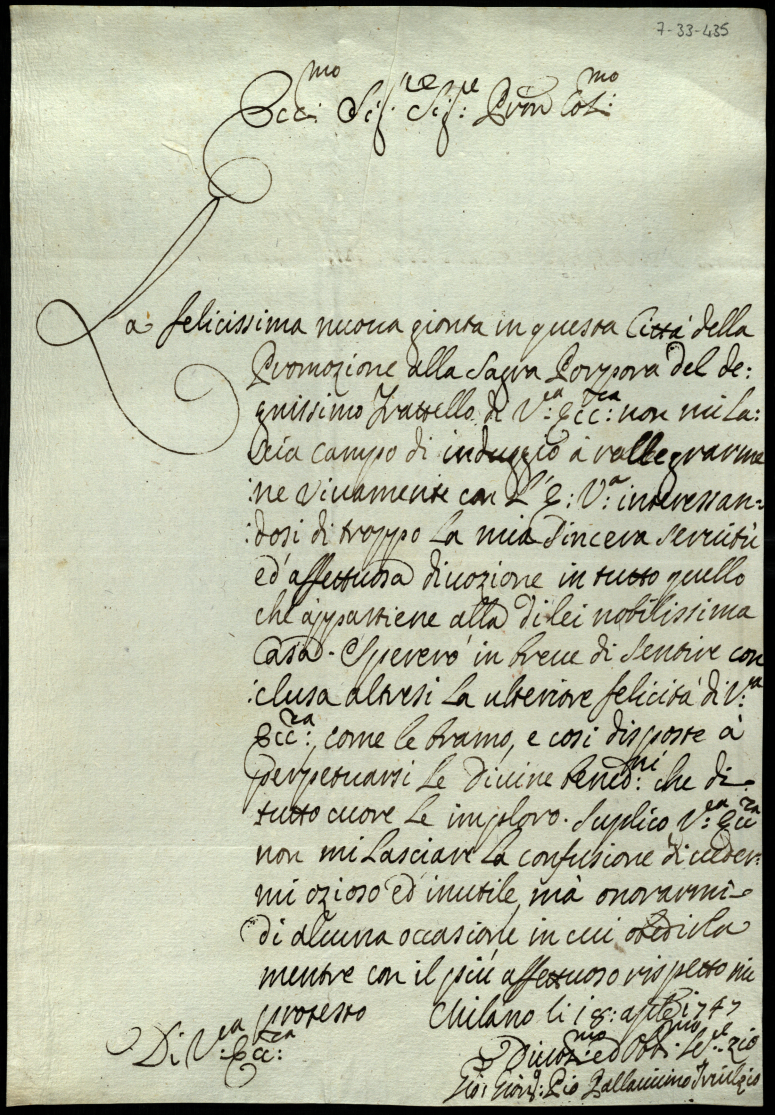 7-33-435
Ecc.mo Sig.re Sig.re Pron Col.mo
La felicissima nuova gionta in questa Città della
Promozione alla Sagra Porpora del de:
gnissimo Fratello di V.ea Ecc.za non mi la:
scia campo di induggio à rallegrarme
:ne vivamente con L'E: V.a interessan=
:dosi di troppo La mia Sincera Servitù
ed' affettuosa divozione in tutto quello
che appartiene alla di lei nobilissima
Casa. Spererò in breve di Sentire con
:clusa altresi La ulteriore felicità di V.ra
Ecc.za, come le bramo, e così disposte à
perpetuarsi Le Divine bened.ni che di
tutto cuore Le imploro. Suplico V.ea Ecc.za
non mi Lasciare La confusione di veder:
mi ozioso ed inutile, mà onorarmi
di alcuna occasione in cui obedirla
mentre con il più affettuoso rispetto mi
protesto Milano li 18: aple 1747
Di V.ea Ecc.za
Divot.mo ed Obb.mo Se.re Zio
Gio: Giorg: Pio Pallavicino Trivulzio